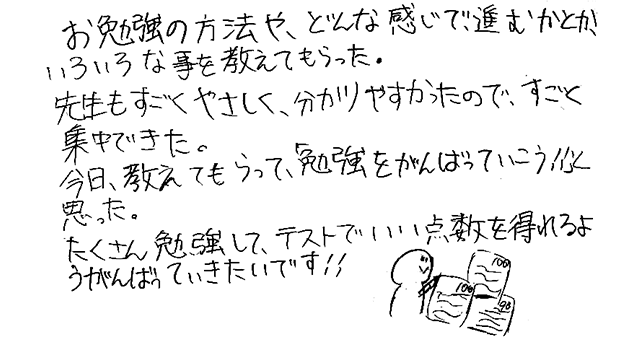 お勉強の方法や、どんな感じで進むかとか、
いろいろな事を教えてもらった。
先生もすごくやさしく、分かりやすかったので、すごく
集中できた。
今日、教えてもらって、勉強をがんばっていこう!!と
思った。
たくさん勉強して、テストでいい点数を得れるよ
うがんばっていきたいです!!
100
100
98